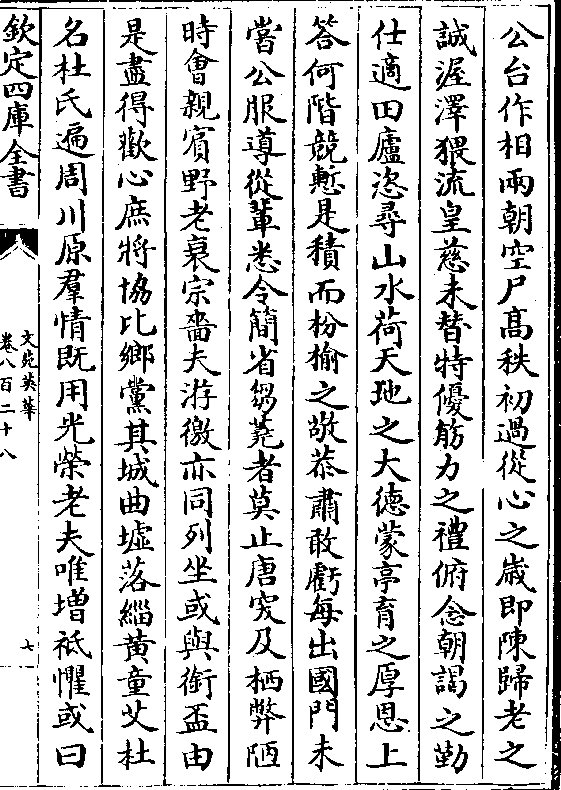 公台作相兩朝空尸髙秩初過從心之歲即陳歸老之
誠渥澤猥流皇慈未替特優筋力之禮俯念朝謁之勤
仕適田廬恣尋山水荷天地之大德蒙亭育之厚恩上
答何階競慙是積而枌榆之敬恭肅敢虧每出國門未
嘗公服導從輩悉令簡省芻蕘者莫止唐突及栖弊陋
時會親賓野老裒宗嗇夫游徼亦同列坐或與銜盃由
是盡得歡心庶將協比鄉黨其城曲墟落緇黄童艾杜
名杜氏遍周川原羣情既用光榮老夫唯增祗懼或曰
欽定四庫全書
文苑英華
卷八百二十八
七